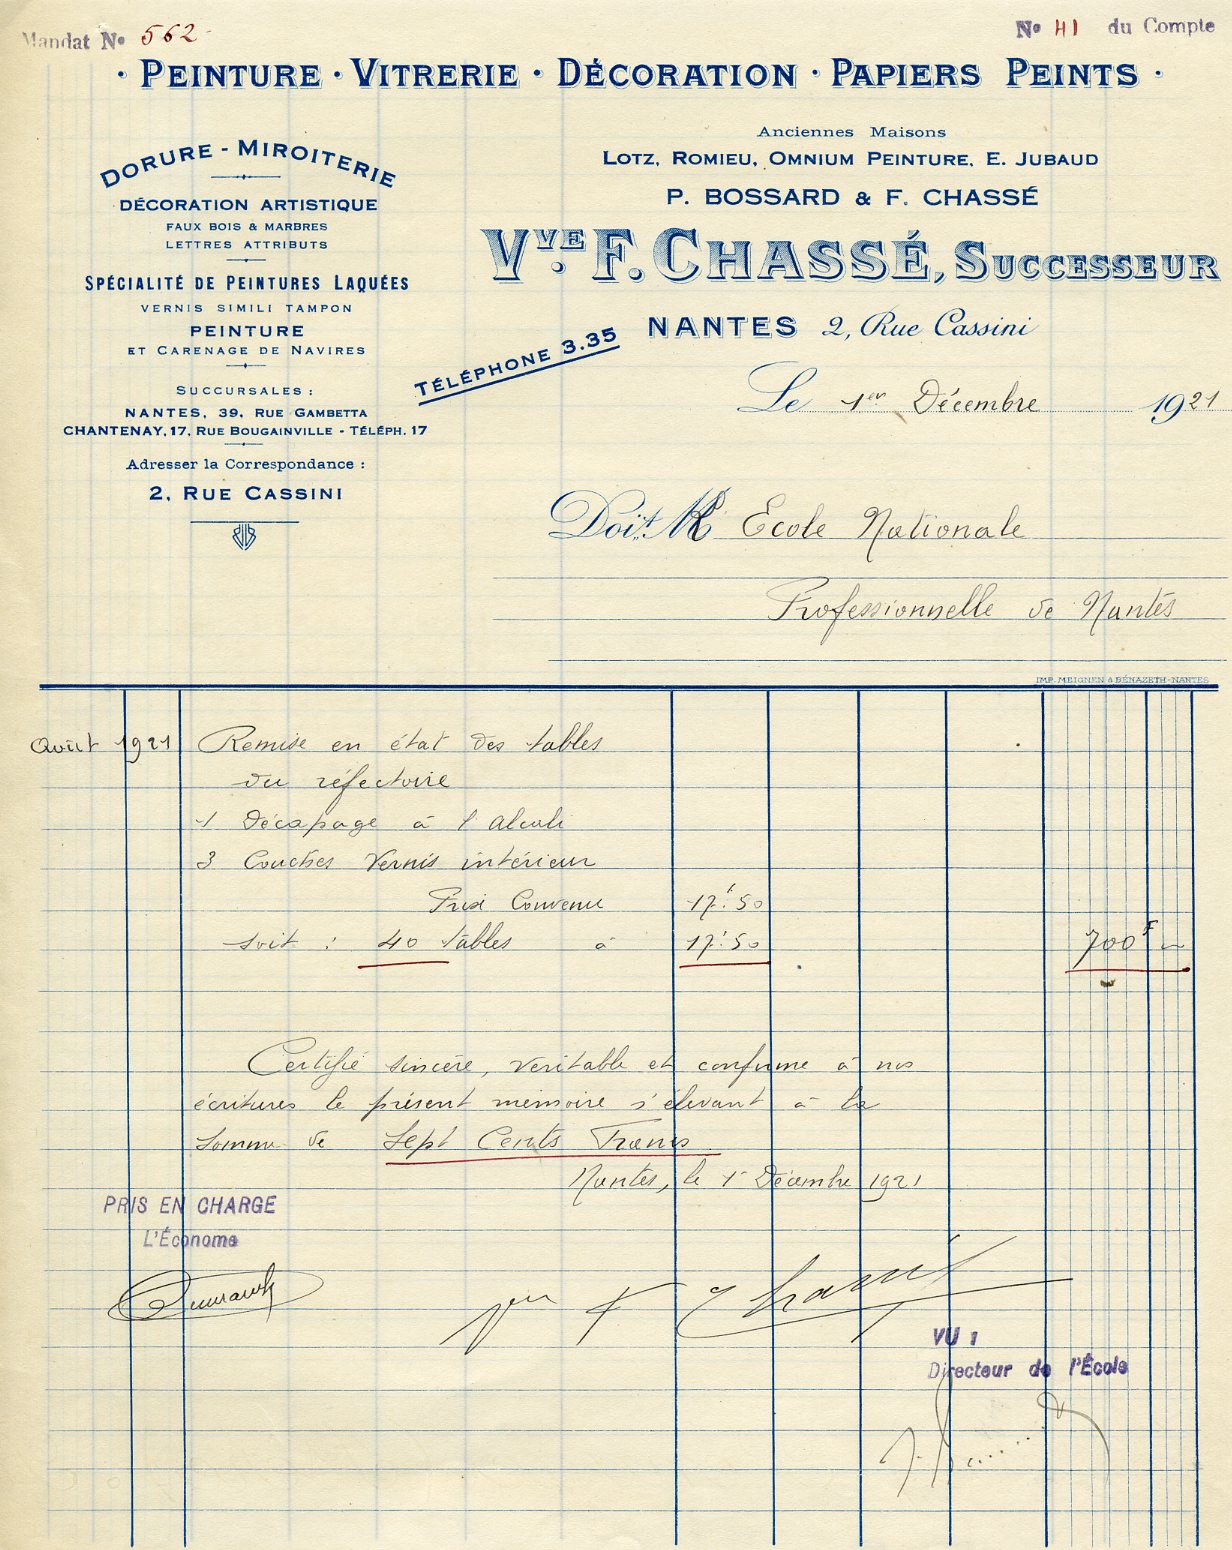 Mandat No 562
No 41 du Compte
· PEINTURE · VITRERIE · DÉCORATION · PAPIERS PEINTS ·
DORURE - MIROITERIE
DÉCORATION ARTISTIQUE
FAUX BOIS & MARBRES
LETTRES ATTRIBUTS
SPÉCIALITÉ DE PEINTURES LAQUÉES
VERNIS SIMILI TAMPON
PEINTURE
ET CARENAGE DE NAVIRES
SUCCURSALES :
NANTES, 39, RUE GAMBETTA
CHANTENAY, 17, RUE BOUGAINVILLE - TÉLÉPH. 17
Adresser la Correspondance :
2, RUE CASSINI
Anciennes Maisons
LOTZ, ROMIEU, OMNIUM PEINTURE, E. JUBAUD
P. BOSSARD & F. CHASSÉ
Vve F. CHASSÉ, SUCCESSEUR
NANTES 2, Rue Cassini
TÉLÉPHONE 3.35
Le 1er Décembre 1921
Doit M Ecole Nationale
Professionnelle de Nantes
IMP. MEIGNEN & BÉNAZETH-NANTES
Août 1921 Remise en état des tables
du réfectoire
1 Décapage à l'alcali
3 Couches Vernis intérieur
Prix Convenu 17f.50
soit : 40 tables à 17f.50 700F
Certifié sincère, veritable et conforme à nos
écritures le présent mémoire s'élevant à la
somme de Sept Cents Francs
Nantes, le 1er Décembre 1921
PRIS EN CHARGE
L'Économe
pour F Chassé
VU :
Directeur de l'École